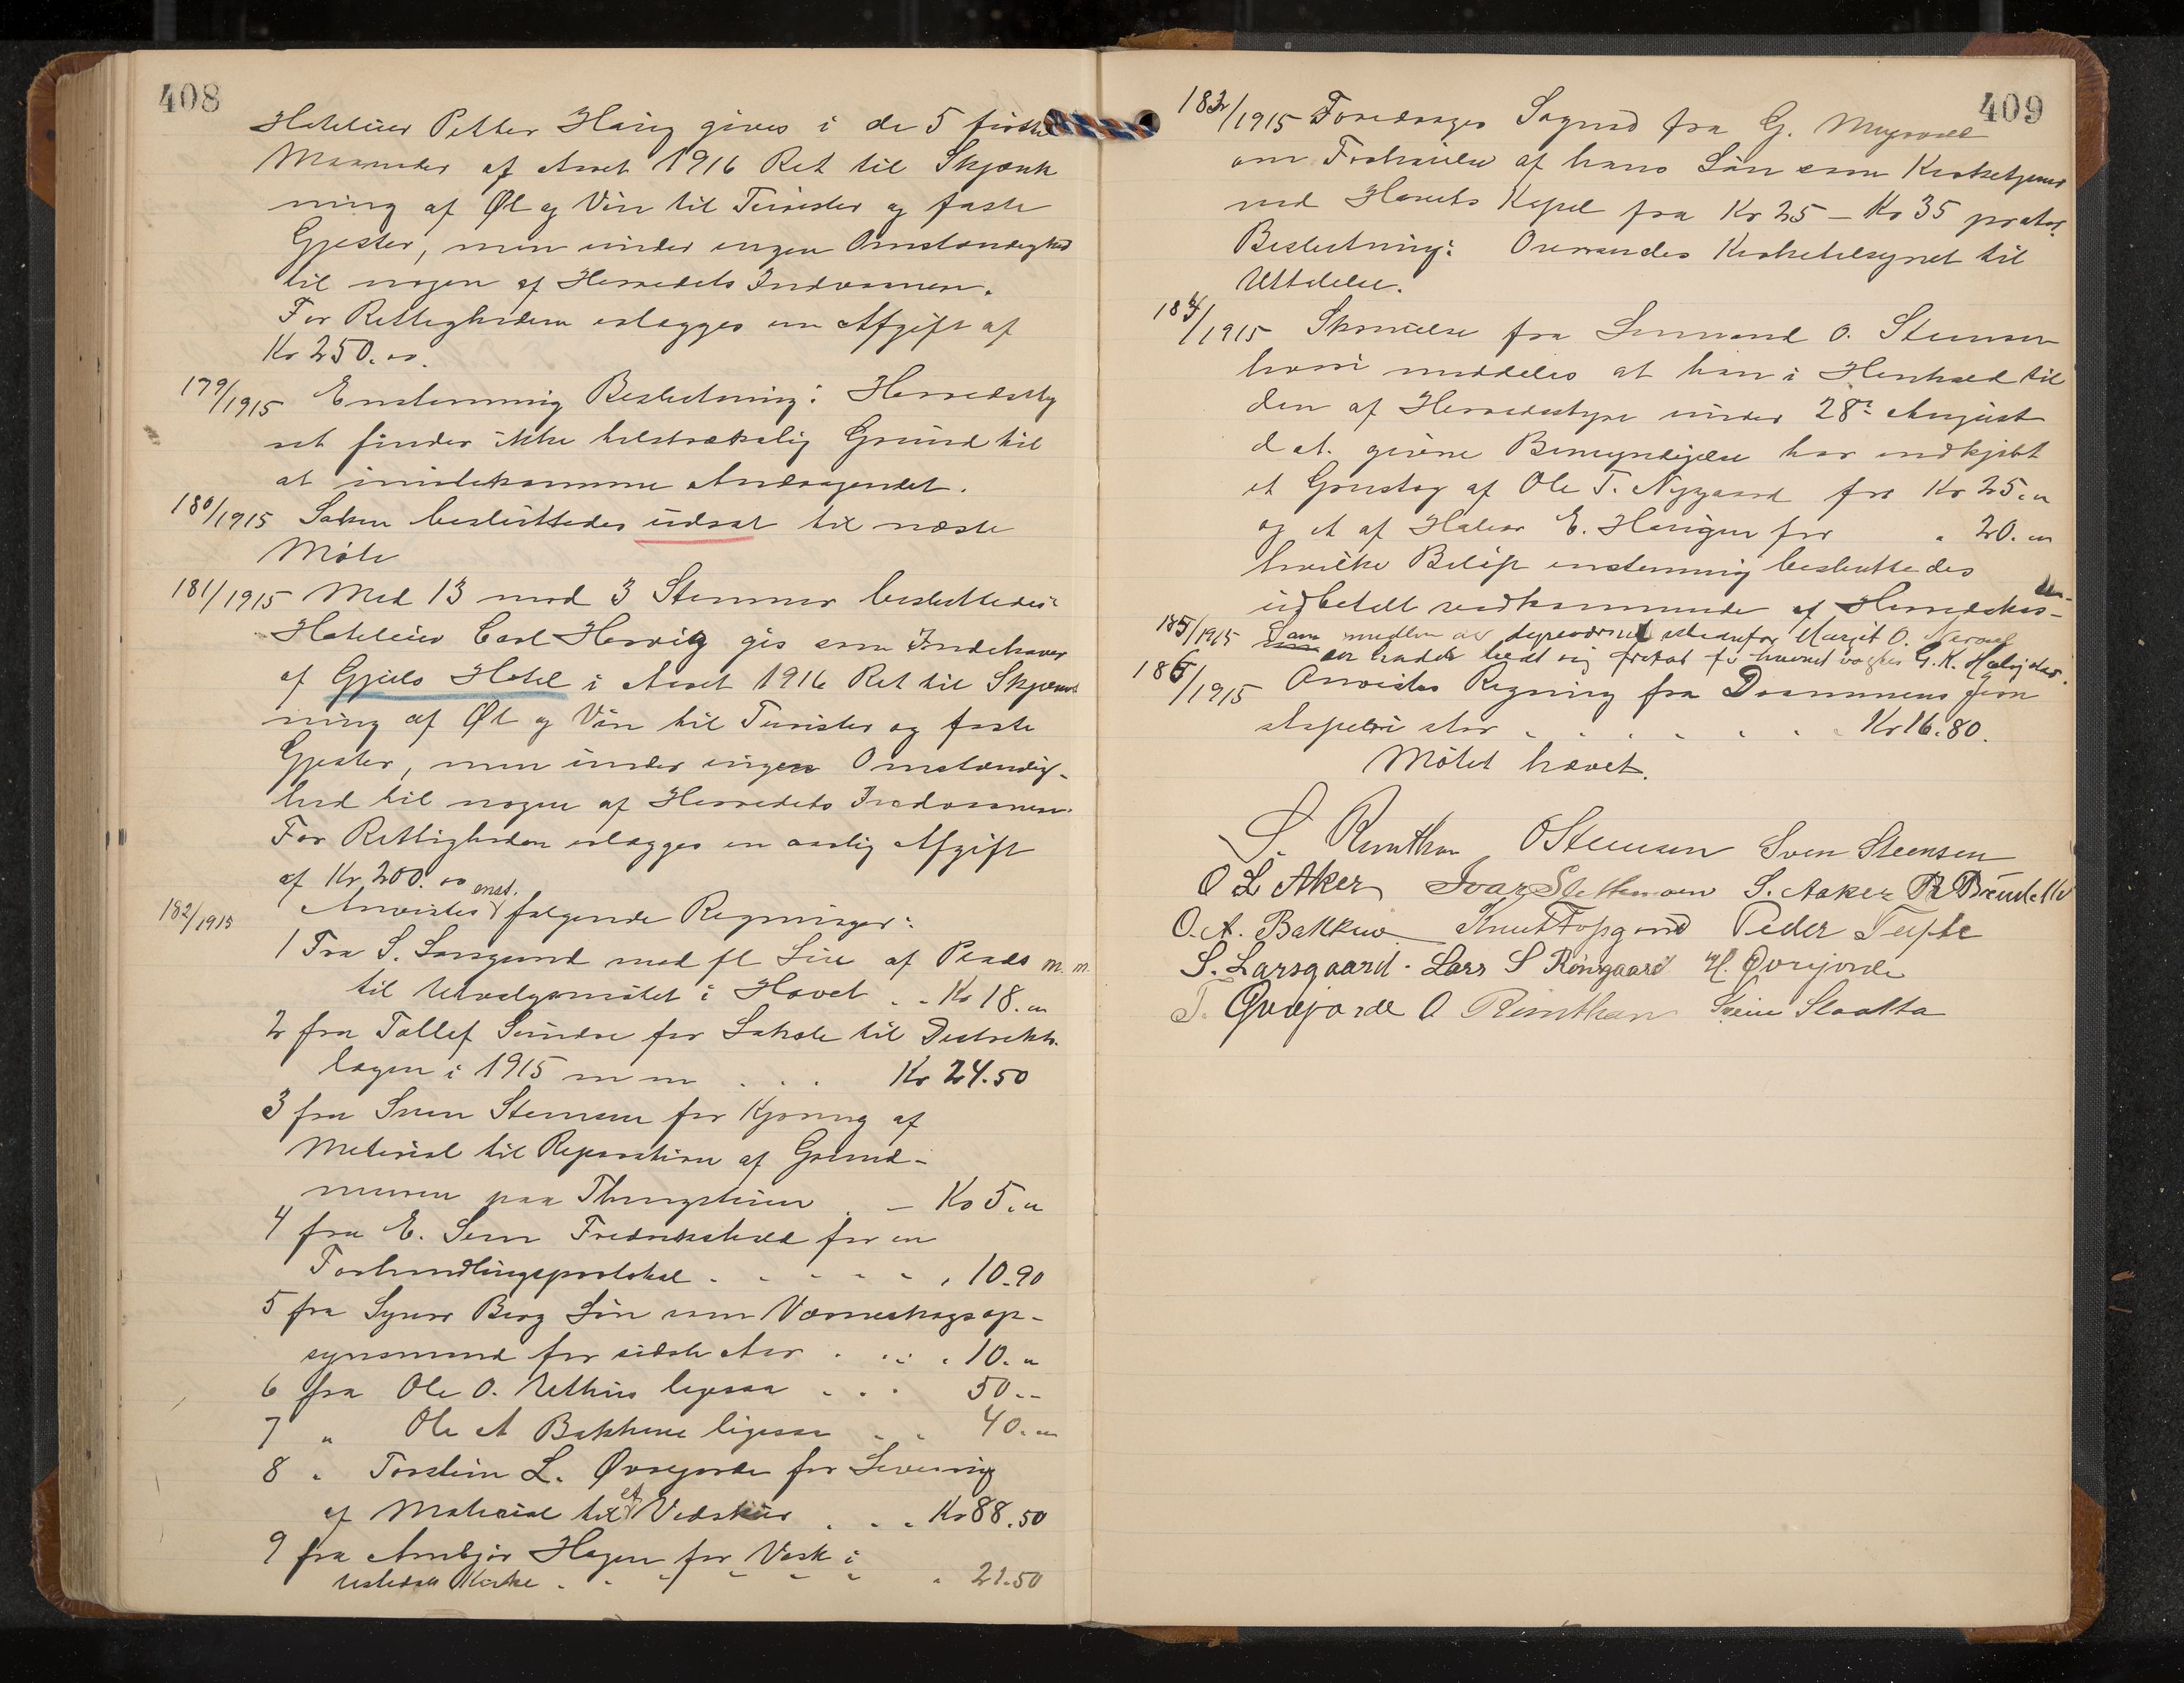 408
Hoteleier Petter Haug gives i de 5 første
Maaneder af Aaret 1916 Ret til Skjænk
ning af Øl og Vin til Turister og faste
Gjester, men under ingen Omstændighed
til nogen af Herredets Indvaanere.
For Rettigheden erlægges en Afgift af
Kr 250.00.
179/1915 Enstemmig Beslutning: Herredsty
ret finder ikke tilstrækelig Grund til
at imøtekomme Andragendet.
180/1915 Saken besluttedes udsat til næste
Møte
181/1915 Med 13 mod 3 Stemmer besluttedes:
Hoteleier Carl Herwig gis som Indehaver
af Gjeilo Hotel i Aaret 1916 Ret til Skjænk
ning af Øl og Vin til Turister og faste
Gjester, men under ingen Omstændig-
hed til nogen af Herredets Indvaanere.
For Rettigheden erlægges en aarlig Afgift
af Kr 200.00
182/1915 Anvistes enst. følgende Regninger:
1 Fra S. Larsgaard med fl Leie af Plads m.m.
til Utvalgsmøtet i Hovet . . Kr 18.00
2 fra Tollef Sundre for Lokale til Distrikts-
lægen i 1915 m m . . . Kr 24.50
3 fra Sven Steensen for Kjøring af
Material til Reparation af Grund-
muren paa Thingstuen . – Kr 5.00
4 fra E. Sem Fredrikshald for en
Forhandlingsprotokol . . . . . . 10.90
5 fra Syver Berg Løn som Værneskogsop-
synsmand for sidste Aar . . . . 10. "
6 fra Ole O. Uthus ligesaa . . . 50.--
7 " Ole A Bakkene ligesaa . . 40.00
8 " Torstein L. Øvrejorde for Levering
af Material til et Vedskur . . . Kr 88.50
9 fra Arnbjør Hagen for Vask i
Ustedals Kirke . . . . . . . 21.50
409
183/1915 Foredroges Søgnad fra G. Myrvold
om Forhøielse af hans Løn som Kirketjener
ved Hovets Kapel fra Kr 25 – Kr 35 pr ator.
Beslutning: Oversendes Kirketilsynet til
Uttalelse.
184/1915 Skrivelse fra Lensmand O. Steensen
hvori meddeles at han i Henhold til
den af Herredsstyre under 28de August
d. A. givne Bemyndigelse har indkjøbt
et Grustag af Ole T. Nygaard for Kr 25.00
og et af Halvor E. Haugen for " 20.00
hvilke Beløp enstemmig besluttedes
udbetalt vedkommende af Herredskas-
sen.
185/1915 Som medlem av istedenfor Margit O.
som hadde bedt sig fritat for hvervet valgtes G. K.
186/1915 Anvistes Regning fra Drammens Jern
støperi stor . . . . . . . Kr 16.80.
Møtet hævet.
S. Rimthun OSteensen Sven Steensen
O L Aker Ivar Slettemoen S. Aaker
O. A. Bakken Knut Fossgard Peder Tufte
S. Larsgaard. Lars S Røingaard H. Øvrejorde
T. Øvrejorde O Rimthun Svein Slaatta